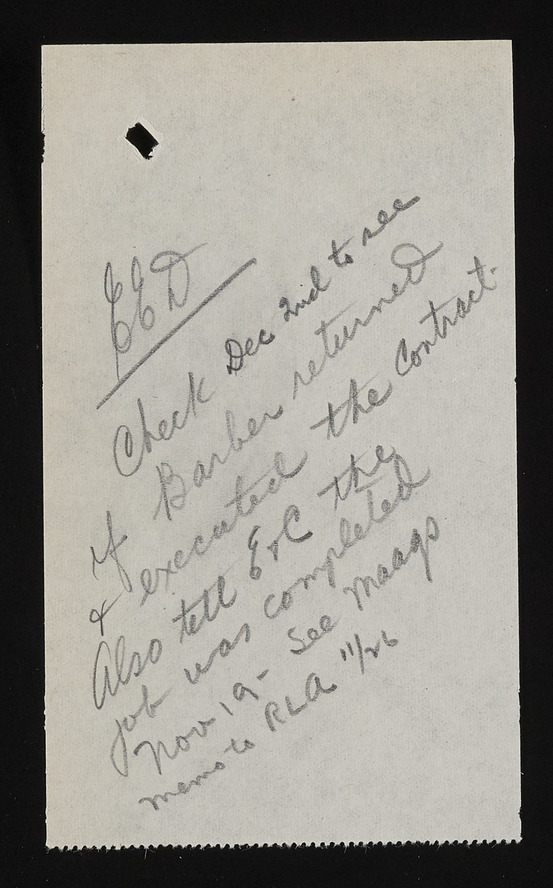 EED
Check Dec 2nd to see
if Barber returned
& executed the contract.
Also tell E&C the
job was completed
Nov 19 - See Maags
memo to RLA 11/26